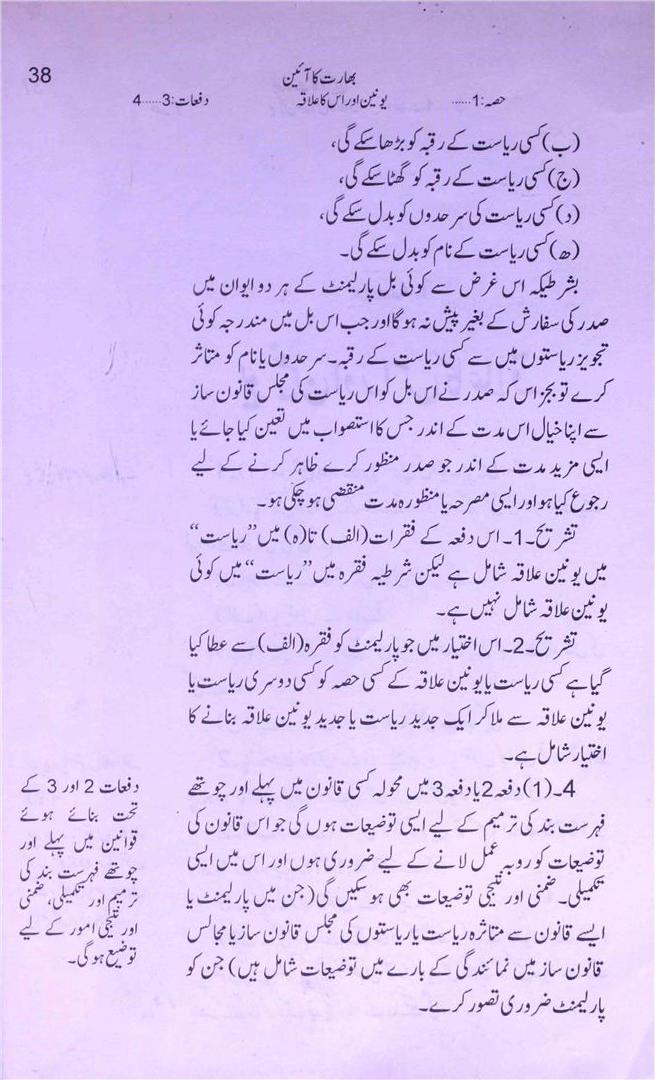 38
بھارت کا آئین
حصہ:1......
یونین اور اس کا علاقہ
دفعات:3.....4
(ب)کسی ریاست کے رقبہ کو بڑھا سکے گی،
(ج)کسی ریاست کے رقبہ کو گھٹا سکے گی،
(د)کسی ریاست کی سرحدوں کو بدل سکے گی،
(ھ)کسی ریاست کے نام کو بدل سکے گی۔
بشرطیکہ اس غرض سے کوئی بل پارلیمنٹ کے ہر دو ایوان میں
صدر کی سفارش کے بغیر پیش نہ ہوگا اور جب اس بل میں مندرجہ کوئی
تجویز ریاستوں میں سے کسی ریاست کے رقبہ۔ سرحدوں یا نام کو متاثر
کرے تو بجز اس کہ صدر نے اس بل کو اس ریاست کی مجلس قانون ساز
سے اپنا خیال اس مدت کے اندر جس کا استصواب میں تعین کیا جائے یا
ایسی مزید مدت کے اندر جو صدر منظور کرے ظاہر کرنے کے لیے
رجوع کیا ہو اور ایسی مصرحہ یا منظورہ مدت منقضی ہو چکی ہو۔
تشریح۔1۔ اس دفعہ کے فقرات (الف) تا(ہ) میں ”ریاست“
میں یونین علاقہ شامل ہے لیکن شرطیہ فقرہ میں ”ریاست“ میں کوئی
یونین علاقہ شامل نہیں ہے۔
تشریح۔2۔ اس اختیار میں جو پارلیمنٹ کو فقرہ (الف) سے عطا کیا
گیا ہے کسی ریاست یا یونین علاقہ کے کسی حصہ کو کسی دوسری ریاست یا
یونین علاقہ سے ملا کر ایک جدید ریاست یا جدید یونین علاقہ بنانے کا
اختیار شامل ہے۔
4۔(1) دفعہ 2 یا دفعہ 3 میں محولہ کسی قانون میں پہلے اور چوتھے
فہرست بند کی ترمیم کے لیے ایسی توضیعات ہوں گی جو اس قانون کی
توضیعات کو روبہ عمل لانے کے لیے ضروری ہوں اور اس میں ایسی
تکمیلی۔ ضمنی اور نتیجی توضیعات بھی ہو سکیں گی (جن میں پارلیمنٹ یا
ایسے قانون سے متاثرہ ریاست یا ریاستوں کی مجلس قانون ساز یا مجالس
قانون ساز میں نمائندگی کے بارے میں توضیعات شامل ہیں) جن کو
پارلیمنٹ ضروری تصور کرے۔
دفعات 2 اور 3 کے
تحت بنائے ہوئے
قوانین میں پہلے اور
چوتھے فہرست بند کی
ترمیم اور تکمیلی، ضمنی
اور نتیجی امور کے لیے
توضیع ہوگی۔